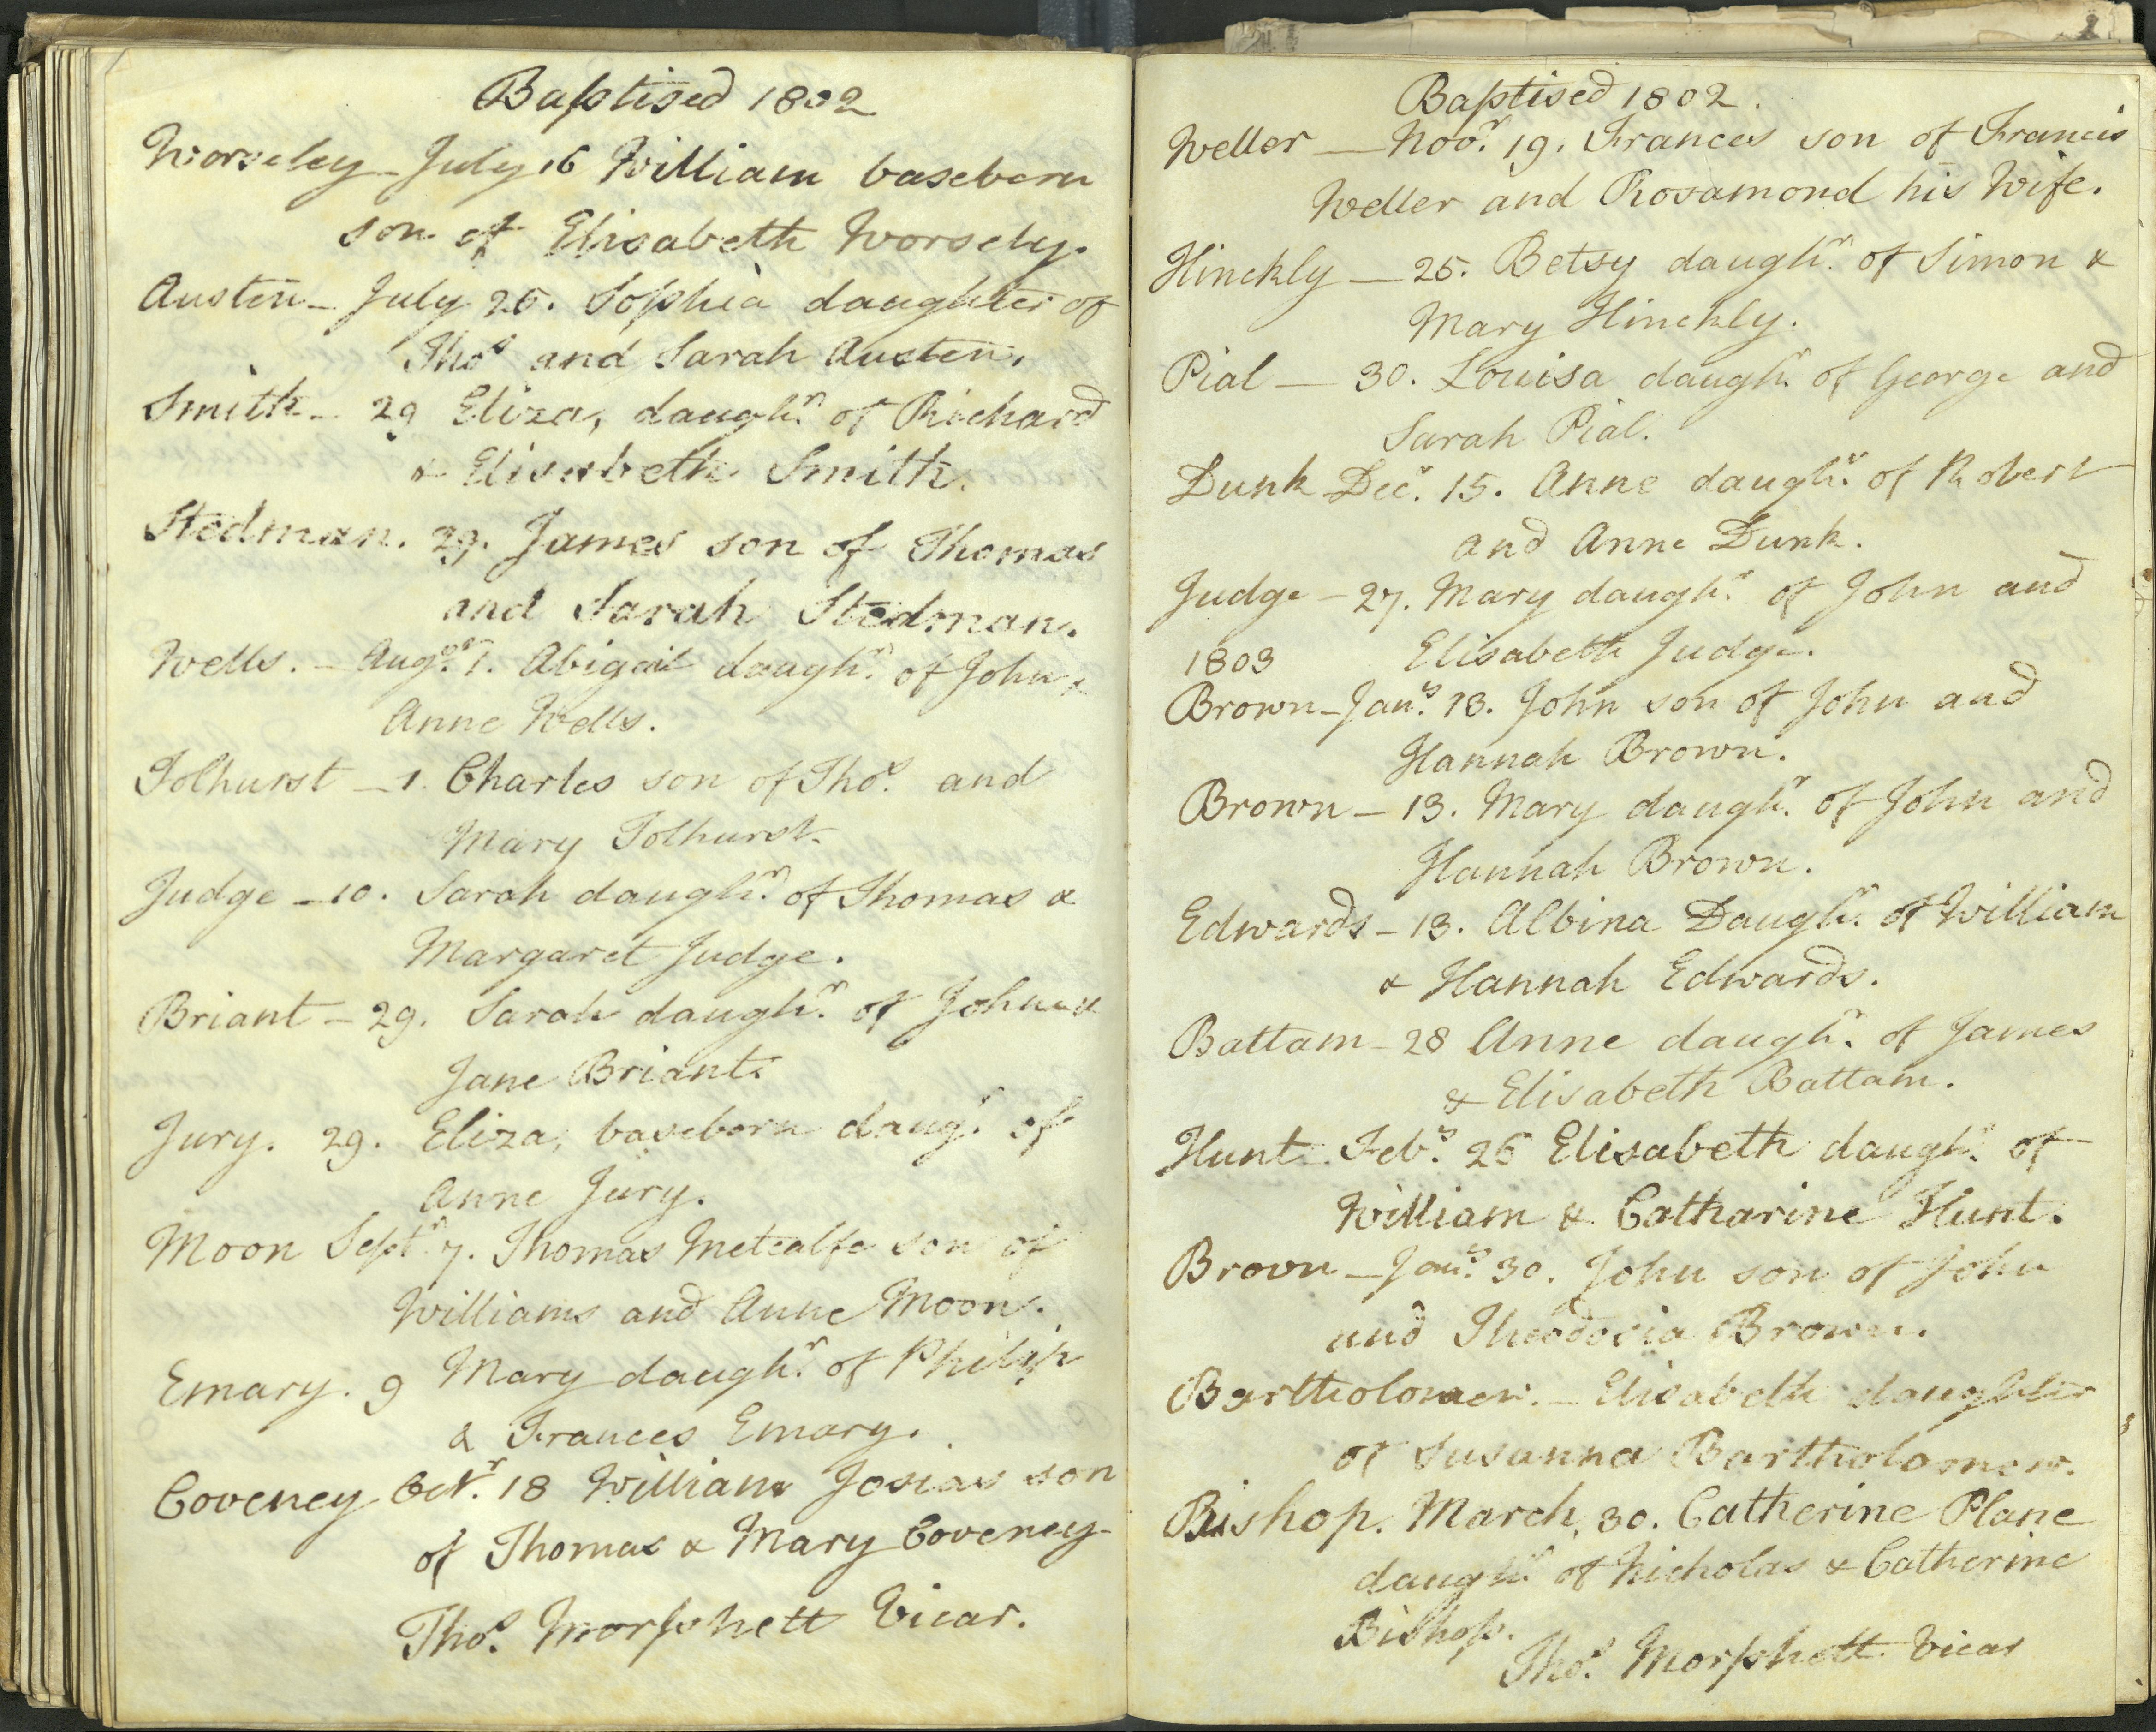 Baptised 1802
Worseley - July 16 William baseborn
son of Elisabeth Worsely.
Austen - July 25. Sophia daughter of
Thos and Sarah Austen.
Smith - 29 Eliza, daughr. of Richard
& Elisabeth Smith.
Stedman. 29. James son of Thomas
and Sarah Stedman.
Wells. - Augst. 1. Abigail daughr. of John &
Anne Wells.
Tolhurst - 1. Charles son of Thos. and
Mary Tolhurst.
Judge - 10. Sarah daughr. of Thomas &
Margaret Judge.
Briant - 29. Sarah daughr. of John &
Jane Briant.
Jury. 29. Eliza, baseborn daugr. of
Anne Jury.
Moon Septr. 7. Thomas Metcalfe son of
Williams and Anne Moon.
Emary. 9 Mary daughr. of Philip
& Frances Emary.
Coveney Octr. 18 William Josias son
of Thomas & Mary Coveney
Thos. Morphett Vicar.
Baptised 1802.
Weller - Novr. 19. Frances son of Francis
Weller and Rosamond his Wife.
Hinckly - 25. Betsy daughr. of Simon &
Mary Hinckly.
Pial - 30. Louisa daughr. of George and
Sarah Pial.
Dunk Decr. 15. Anne daughr. of Robert
and Anne Dunk.
Judge - 27. Mary daughr. of John and
1803 Elisabeth Judge.
Brown - Jany. 13. John son of John and
Hannah Brown.
Brown - 13. Mary daughr. of John and
Hannah Brown.
Edwards - 13. Albina Daughr. of William
& Hannah Edwards.
Battam - 28 Anne daughr. of James
& Elisabeth Battam.
Hunt - Feby. 25 Elisabeth daughr. of
William & Catharine Hunt.
Brown - Jany. 30. John son of John
and Theodosia Brown.
Bartholomew. - Elisabeth daughter
of Susanna Bartholomew.
Bishop. March. 30. Catherine Plane
daughr. of Nicholas & Catherine
Bishop.
Thos. Morphett Vicar